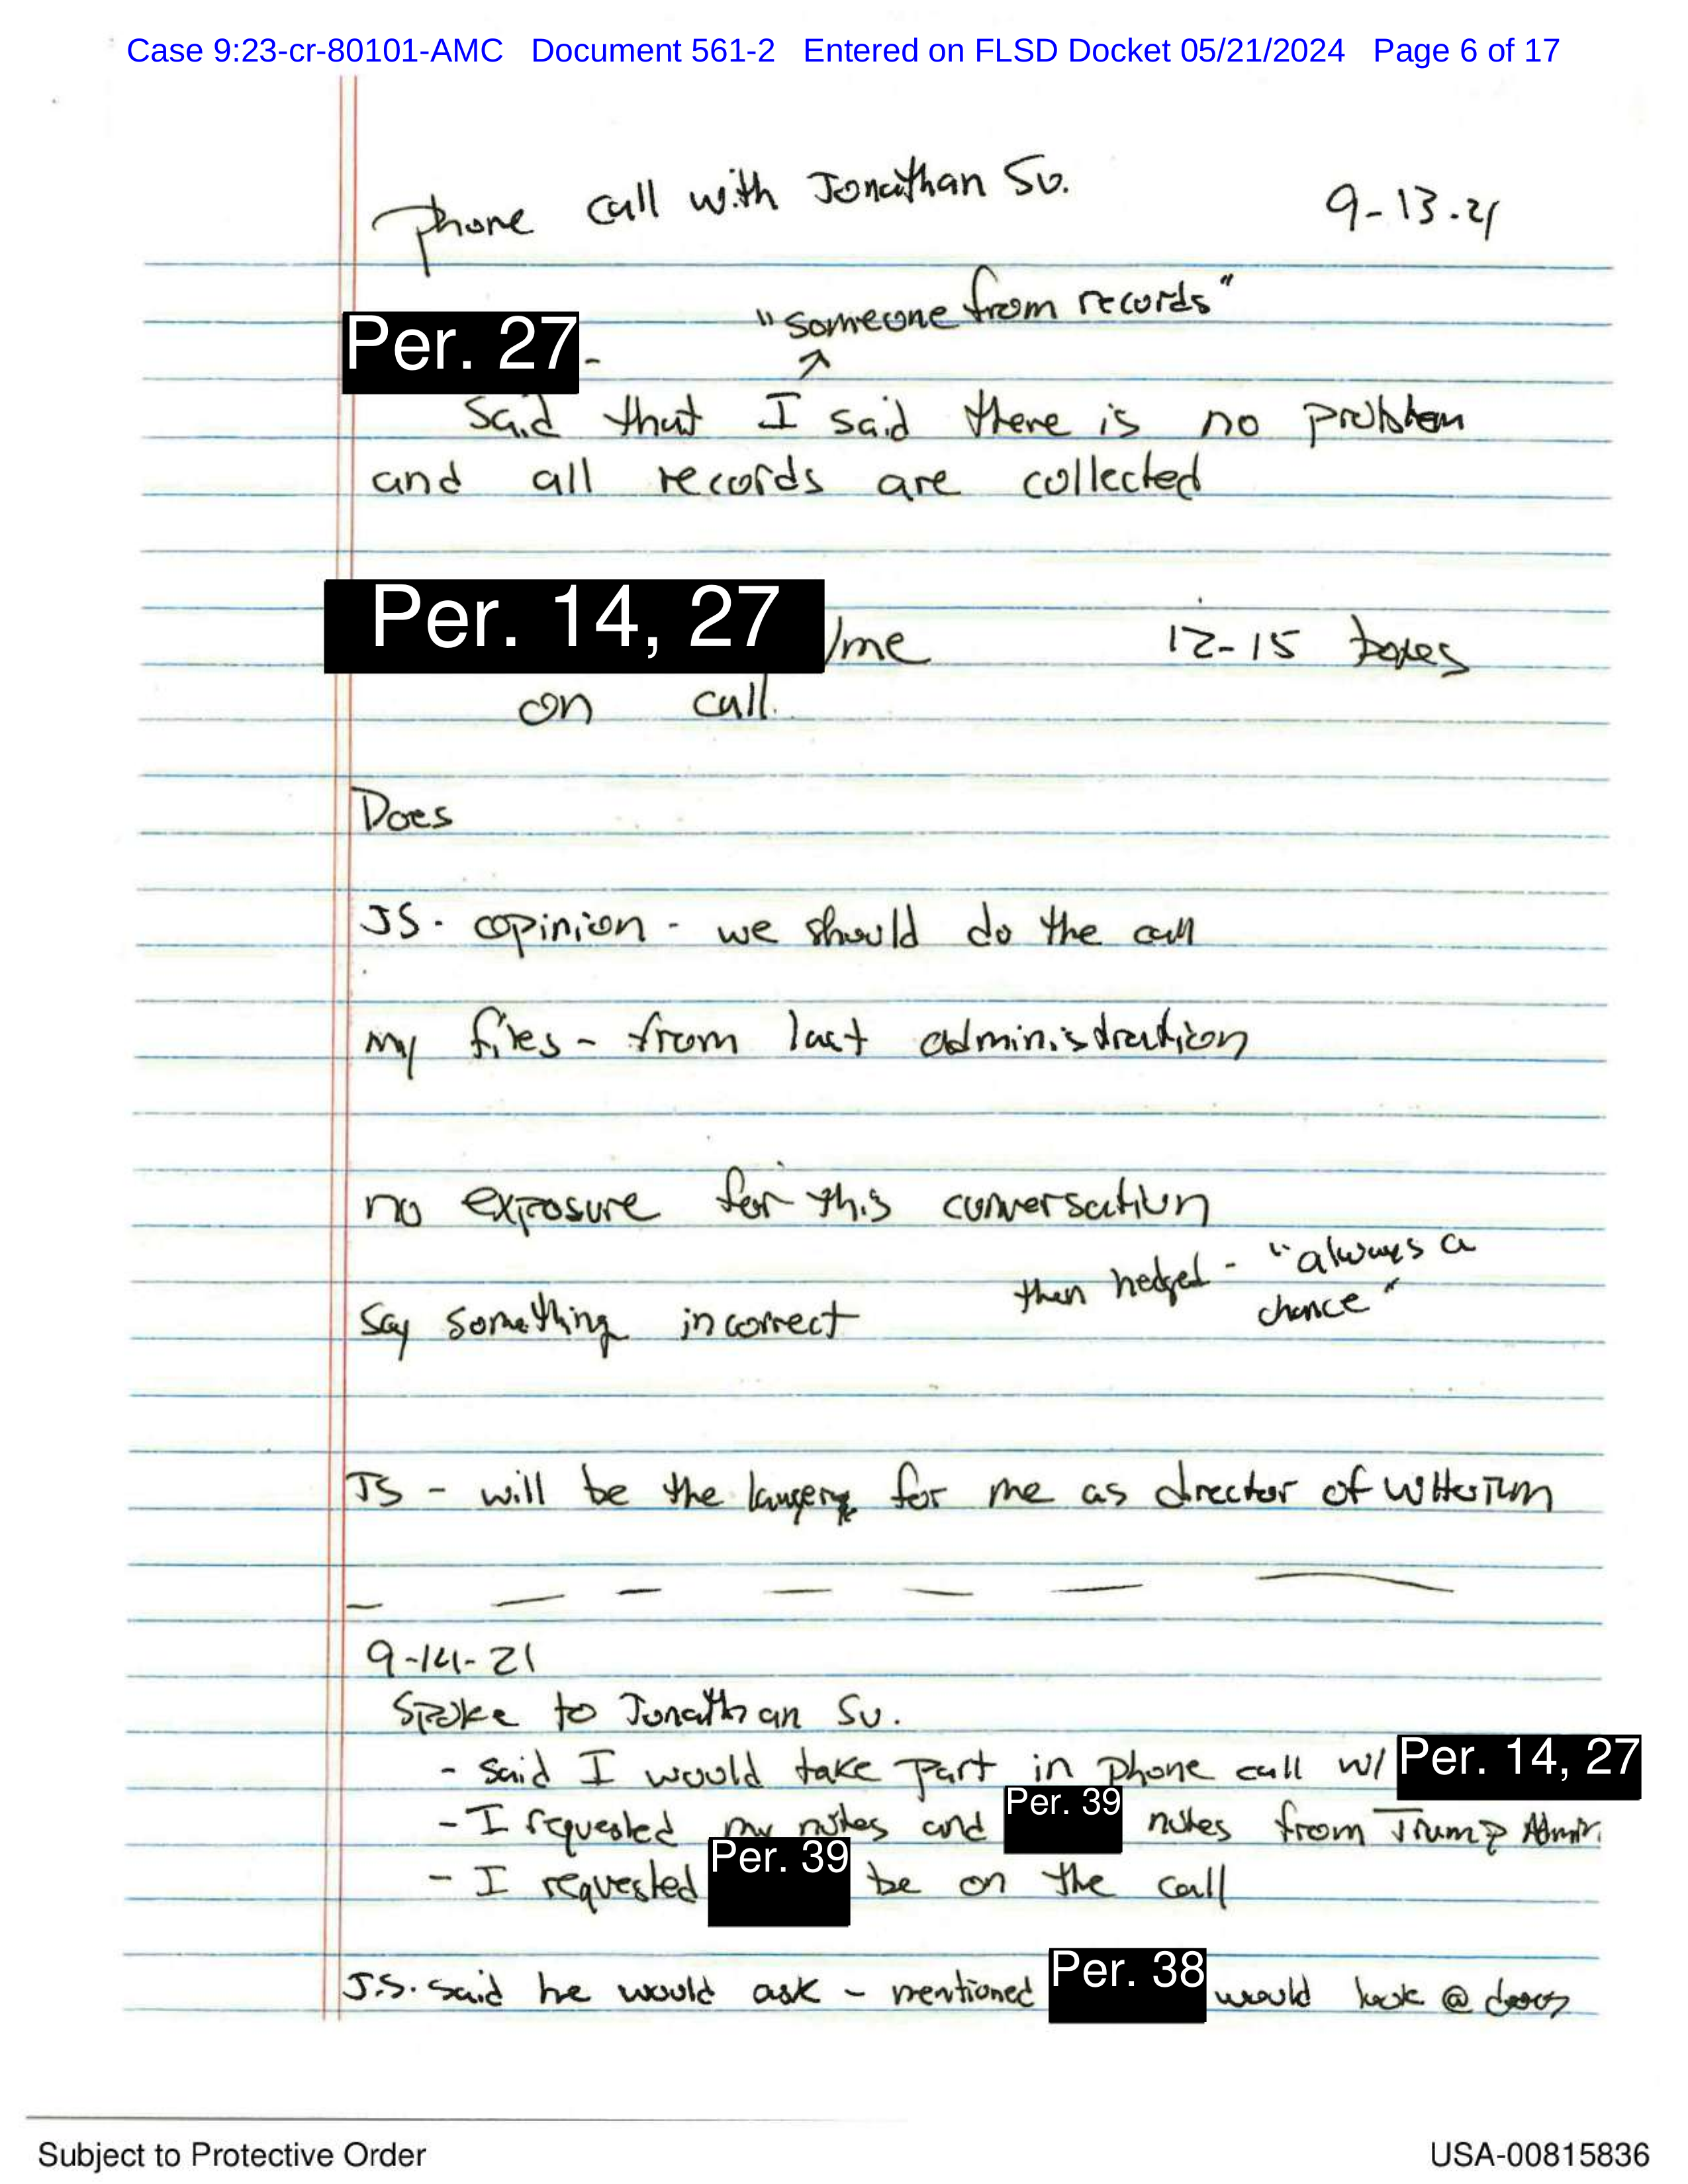 Case 9:23-cr-80101-AMC Document 561-2 Entered on FLSD Docket 05/21/2024 Page 6 of 17
Phone call with Jonathan Su. 9-13-21
"someone from records"
Per. 27 -
Said that I said there is no problem
and all records are collected
Per. 14, 27 /me 12-15 boxes
on call.
Does
JS - opinion - we should do the call
my files - from last administration
no exposure for this conversation
then hedged - "always a
chance"
Say something incorrect
JS - will be the for me as director of WHORM
9-14-21
Spoke to Jonathan Su.
- said I would take part in phone call w/ Per. 14, 27
- I requested my notes and Per. 39 notes from Trump Admin.
- I requested Per. 39 be on the call
J.S. said he would ask - mentioned Per. 38 would look @ docs
Subject to Protective Order USA-00815836